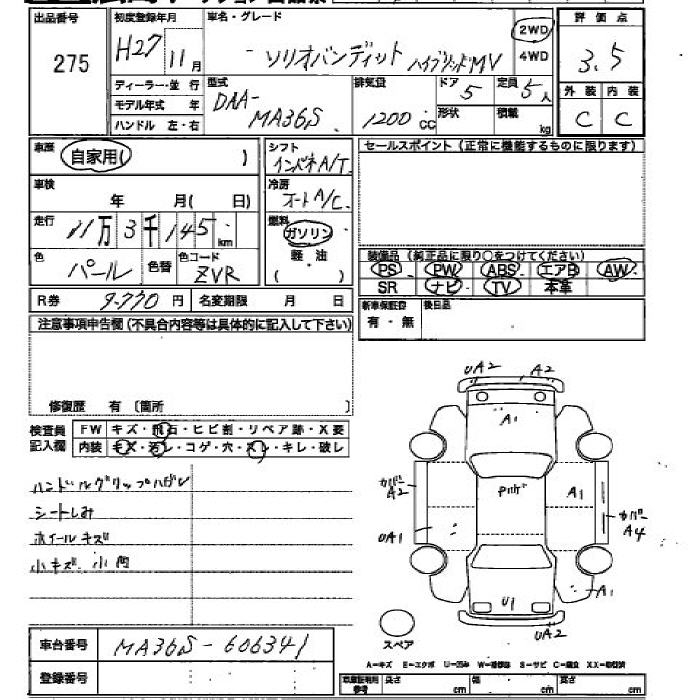 出品番号 275
初度登録年月 H27 11月
車名・グレード ソリオバンディット ハイブリッドMV
2WD
4WD
評価点 3.5
外装 内装
C C
ディーラー・並 行
モデル年式 年
ハンドル 左・右
型式 DAA-MA36S
排気筒 1200 CC
ドア 5
形状
定員 5人
積載 kg
車歴 自家用( )
シフト インパネA/T
セールスポイント (正常に機能するものに限ります)
車検 年 月( 日)
冷房 オートA/C
走行 11万3千145km
燃料 ガソリン
軽 油
( ・ )
色 パール
色替
色コード ZVR
装備品 (純正品に限り○をつけてください)
PS PW ABS エアB AW
SR ナビ TV 本革
R券 9.770円
名変期限 月 日
新車保証書 有・無
後日品
注意事項申告欄 (不具合内容等は具体的に記入して下さい)
修復歴 有 〔箇所 〕
検査員記入欄
FW キズ・飛石・ヒビ割・リペア跡・X要
内装 キズ・汚レ・コゲ・穴・スレ・キレ・破レ
ハンドルグリップハゲ
シートしみ
ホイールキズ
小キズ、小凹
UA2 A2
A1
カバー A2
A1
カバー A4
UA1
A1
U1
UA2
スペア
車台番号 MA36S-606341
登録番号
A=キズ E=エクボ U=凹み W=補修跡 S=サビ C=腐食 XX=取替済
長さ cm
幅 cm
高さ cm